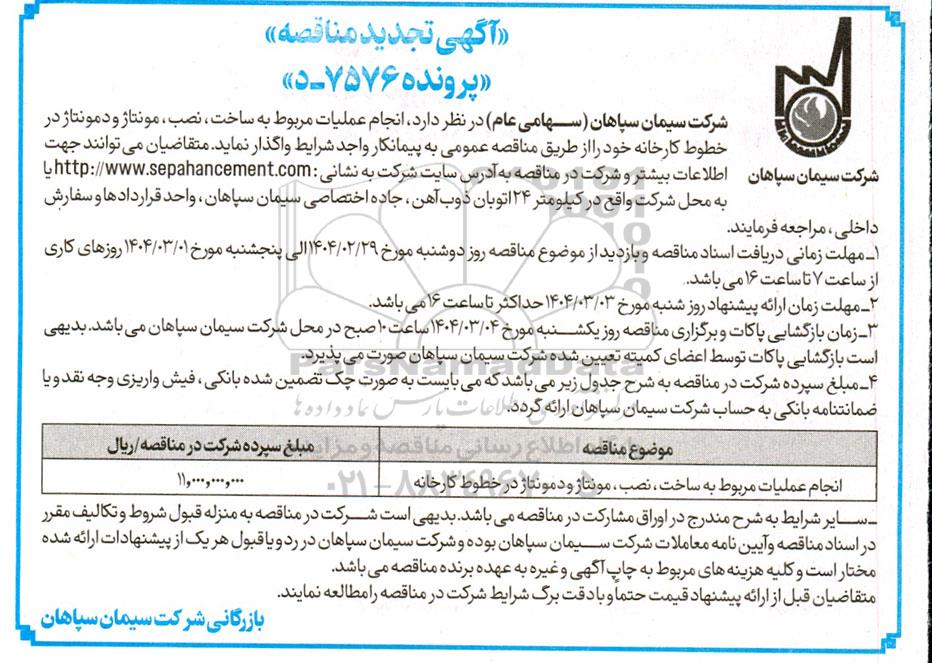 «آگهی تجدید مناقصه»
«پرونده ۷۵۷۶-د»
شرکت سیمان سپاهان (سهامی عام) در نظر دارد، انجام عملیات مربوط به ساخت، نصب، مونتاژ و دمونتاژ در
خطوط کارخانه خود را از طریق مناقصه عمومی به پیمانکار واجد شرایط واگذار نماید. متقاضیان می توانند جهت
اطلاعات بیشتر و شرکت در مناقصه به آدرس سایت شرکت به نشانی: http://www.sepahancement.com یا
به محل شرکت واقع در کیلومتر ۲۴ اتوبان ذوب آهن، جاده اختصاصی سیمان سپاهان، واحد قراردادها و سفارش
شرکت سیمان سپاهان
داخلی، مراجعه فرمایند.
۱ـ مهلت زمانی دریافت اسناد مناقصه و بازدید از موضوع مناقصه روز دوشنبه مورخ ۱۴۰۴/۰۲/۲۹ الی پنجشنبه مورخ ۱۴۰۴/۰۳/۰۱ روزهای کاری
از ساعت ۷ تا ساعت ۱۶ می باشد.
۲ـ مهلت زمان ارائه پیشنهاد روز شنبه مورخ ۱۴۰۴/۰۳/۰۳ حداکثر تا ساعت ۱۶ می باشد.
۳ـ زمان بازگشایی پاکات و برگزاری مناقصه روز یکشنبه مورخ ۱۴۰۴/۰۳/۰۴ ساعت ۱۰ صبح در محل شرکت سیمان سپاهان می باشد. بدیهی
است بازگشایی پاکات توسط اعضای کمیته تعیین شده شرکت سیمان سپاهان صورت می پذیرد.
۴ـ مبلغ سپرده شرکت در مناقصه به شرح جدول زیر می باشد که می بایست به صورت چک تضمین شده بانکی، فیش واریزی وجه نقد و یا
ضمانتنامه بانکی به حساب شرکت سیمان سپاهان ارائه گردد.
موضوع مناقصه مبلغ سپرده شرکت در مناقصه/ریال
انجام عملیات مربوط به ساخت، نصب، مونتاژ و دمونتاژ در خطوط کارخانه ۱۱,۰۰۰,۰۰۰,۰۰۰
ـ سایر شرایط به شرح مندرج در اوراق مشارکت در مناقصه می باشد. بدیهی است شرکت در مناقصه به منزله قبول شروط و تکالیف مقرر
در اسناد مناقصه و آیین نامه معاملات شرکت سیمان سپاهان بوده و شرکت سیمان سپاهان در رد و یا قبول هر یک از پیشنهادات ارائه شده
مختار است و کلیه هزینه های مربوط به چاپ آگهی و غیره به عهده برنده مناقصه می باشد.
متقاضیان قبل از ارائه پیشنهاد قیمت حتماً و با دقت برگ شرایط شرکت در مناقصه را مطالعه نمایند.
بازرگانی شرکت سیمان سپاهان
ParsNamadData
۰۲۱-۸۸۳۴۹۶۷۰-۵